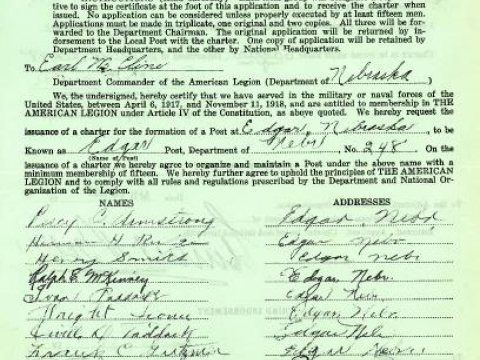 tive to sign the certificate at the foot of this application and to receive the charter when
issued. No application can be considered unless properly executed by at least fifteen men.
Applications must be made in triplicate, one original and two copies. All three will be for-
warded to the Department Chairman. The original application will be returned by In-
dorsement to the Local Post with the charter. One copy of application will be retained by
Department Headquarters, and the other by National Headquarters.
To Earl M. Cline
Department Commander of the American Legion (Department of Nebraska)
We, the undersigned, hereby certify that we have served in the military or naval forces of the
United States, between April 6, 1917, and November 11, 1918, and are entitled to membership in THE
AMERICAN LEGION under Article IV of the Constitution, as above quoted. We hereby request the
issuance of a charter for the formation of a Post at Edgar, Nebraska, to be
Known as Edgar Post, Department of Nebr, No. 248. On
(Name of Post)
issuance of a charter we hereby agree to organize and maintain a Post under the above name with a
minimum membership of fifteen. We hereby further agree to uphold the principles of THE AMERICAN
LEGION and to comply with all rules and regulations prescribed by the Department and National Or-
ganization of the Legion.
NAMES ADDRESSES
Percy C. Armstrong Edgar, Nebr.
Edgar Nebr
Henry Edgar Nebr
Ralph E. McKinney Edgar Nebr.
Ivan Edgar Nebr.
Edgar Nebr
Paddock Edgar Nebr
C. Edgar Nebr